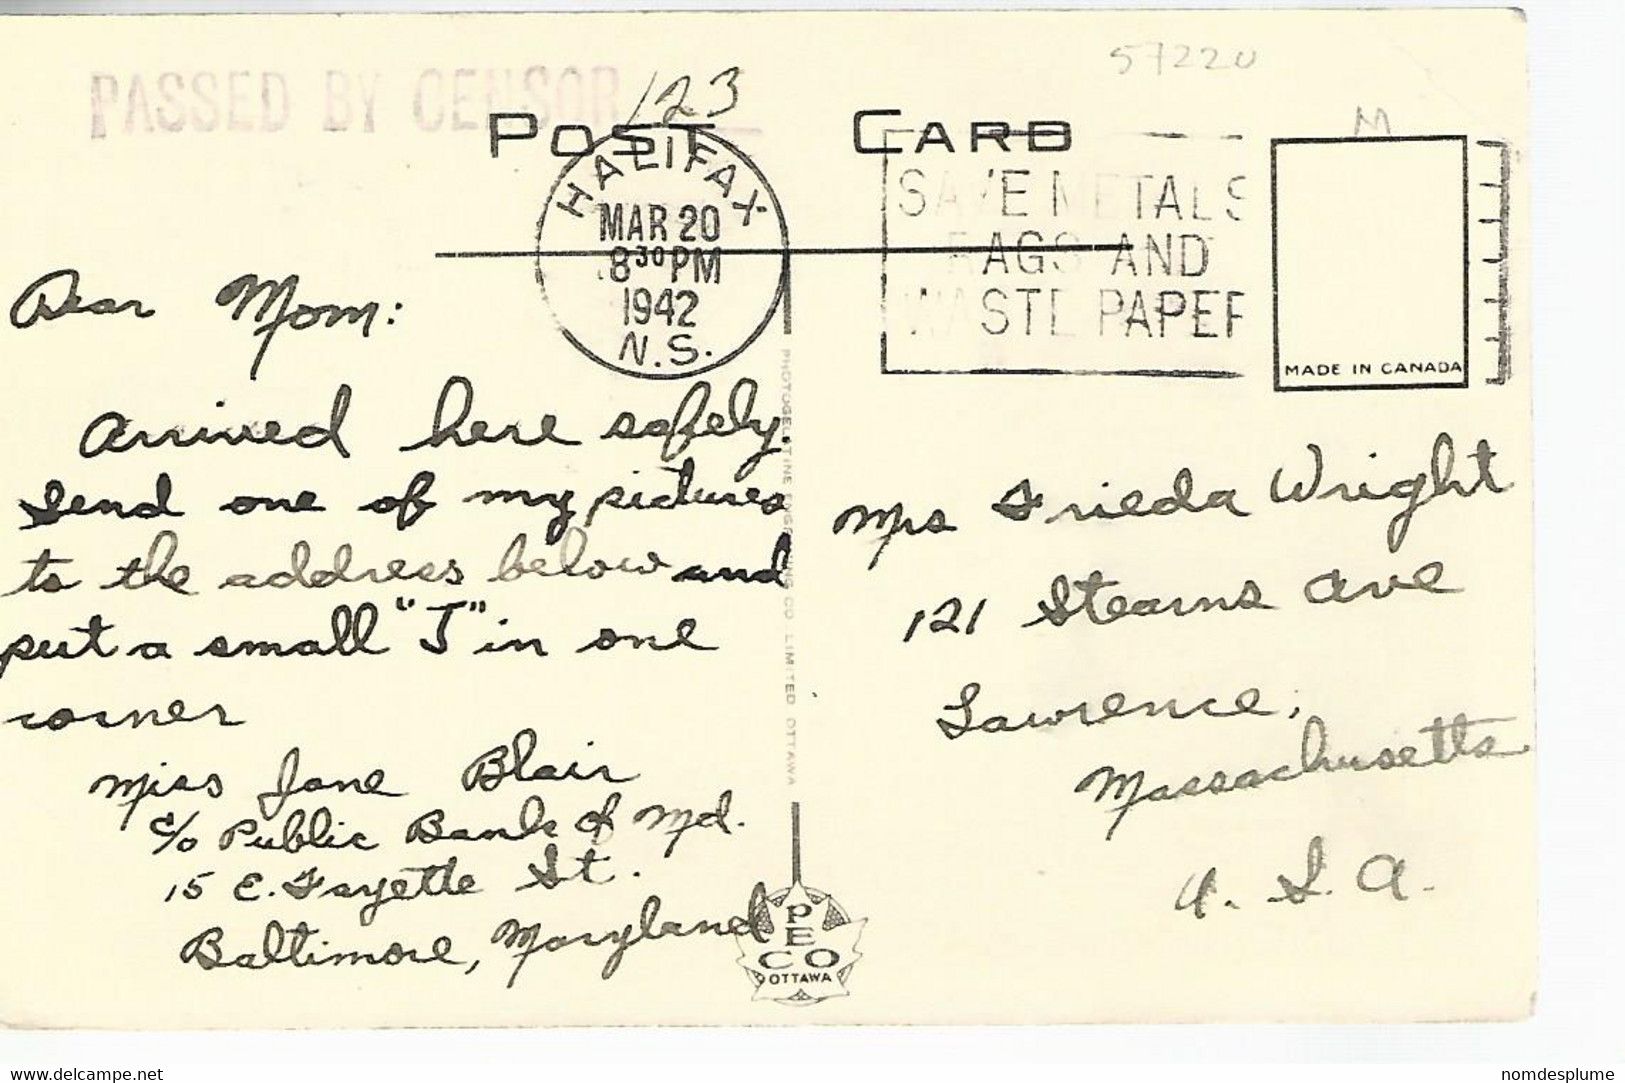 57220
PASSED BY CENSOR 123
POST CARD
M
HALIFAX
MAR 20
830 PM
1942
N.S.
SAVE METALS
RAGS AND
WASTE PAPER
MADE IN CANADA
Dear Mom:
Arrived here safely.
Send one of my pictures
to the address below and
put a small "J" in one
corner
Miss Jane Blair
c/o Public Bank of Md.
15 E. Fayette St.
Baltimore, Maryland
PHOTOGELATINE ENGRAVING CO LIMITED OTTAWA
Mrs Frieda Wright
121 Stearns Ave
Lawrence,
Massachusetts
U. S. A.
PECO
OTTAWA
www.delcampe.net
nomdesplume